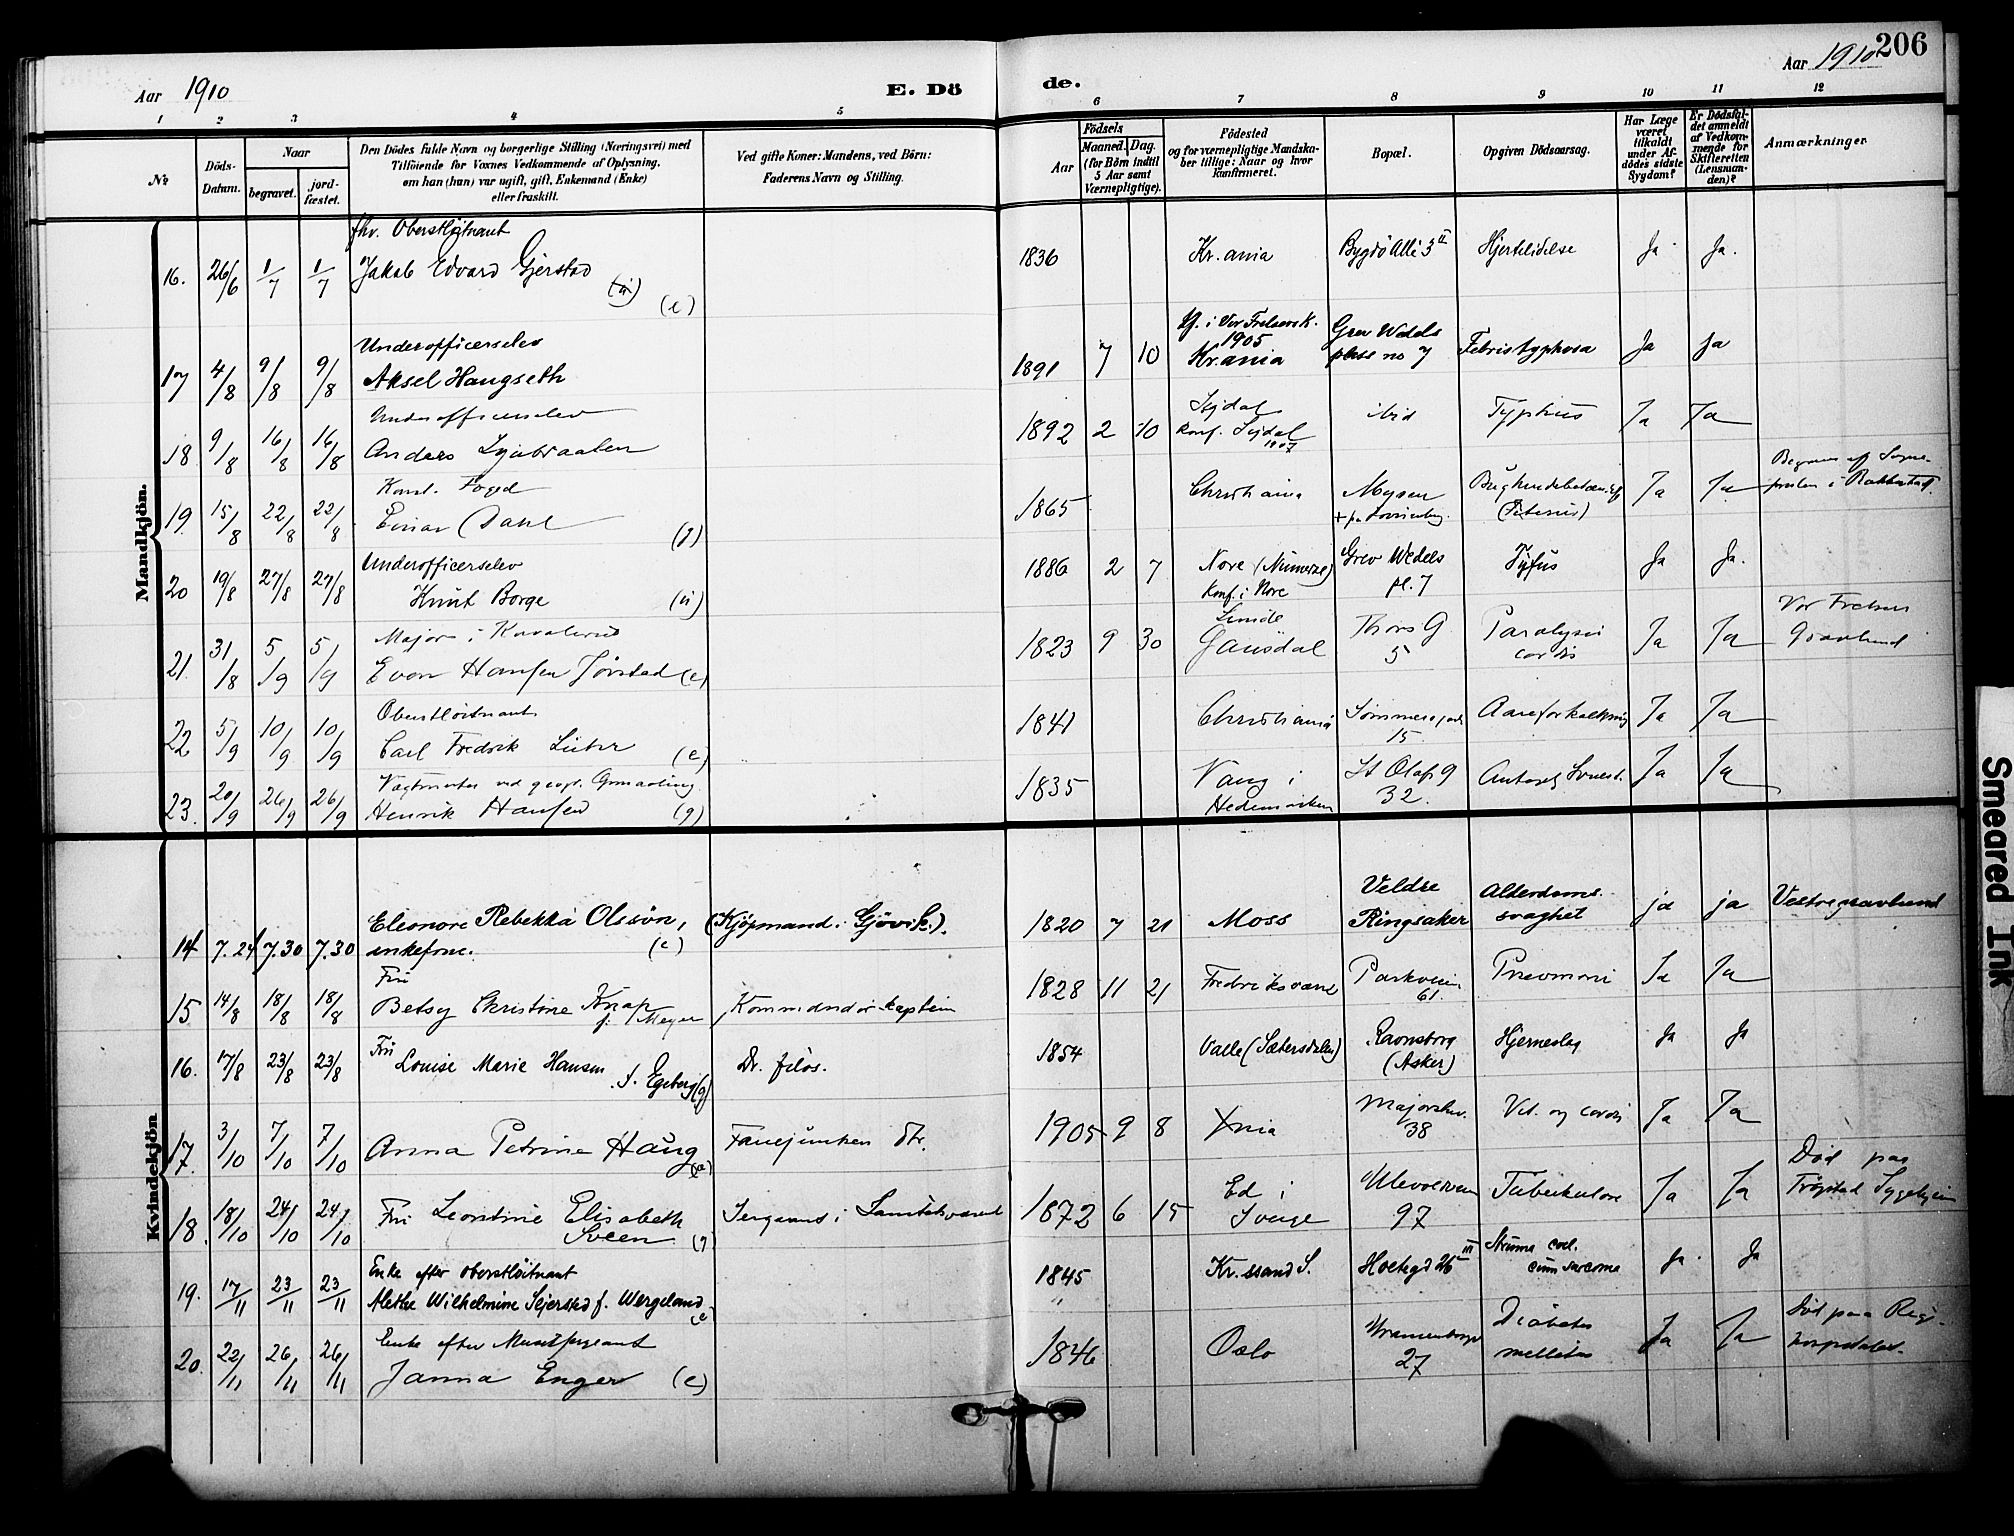 206
Aar 1910
E. Dö
de.
Aar 1910
1 2 3 4 5 6 7 8 9 10 11 12
No
Döds-
Datum.
Naar
begravet.
jord-
fæstet.
Den Dödes fulde Navn og borgerlige Stilling (Næringsvei) med
Tilföiende for Voxnes Vedkommende af Oplysning,
om han (hun) var ugift, gift, Enkemand (Enke)
eller fraskilt.
Ved gifte Koner: Mandens, ved Börn:
Faderens Navn og Stilling.
Aar
Födsels
Maaned. Dag.
(for Börn indtil
5 Aar samt
Værnepligtige).
Födested
og for værnepligtige Mandska-
ber tillige: Naar og hvor
konfirmeret.
Bopæl.
Opgiven Dödsaarsag.
Har Læge
været
tilkaldt
under Af-
dödes sidste
Sygdom?
Er Dödsfal-
det anmeldt
af Vedkom-
mende for
Skifteretten
(Lensman-
den)?
Anmærkninger
Mandkjön.
fhv. Oberstløitnant
16. 26/6 1/7 1/7 Jakob Edvard Gjerstad (e) 1836 Kr.ania Bygdö Allé 3 II Hjertelidelse Ja Ja.
Underofficerselev
17 4/8 9/8 9/8 Aksel Haugseth 1891 7 10 Kf. i Vor Frelsers K. 1905 Kr.ania Grev Wedels plass no 7 Febris typhosa Ja Ja
Underofficerselev
18 9/8 16/8 16/8 Anders 1892 2 10 Sigdal konf. Sigdal 1907 ibid Typhus Ja Ja
Konst. Foged
19 15/8 22/8 22/8 Einar Dahl (g) 1865 Christiania Mysen Ja Ja i Rakkestad.
Underofficerselev
20 19/8 27/8 27/8 Knut Borge (u) 1886 2 7 Nore (Numedal) Konf. i Nore Grev Wedels pl. 7 Tyfus Ja Ja.
Major i Kavaleriet
21 31/8 5/9 5/9 Even Hansen Jørstad (e) 1823 9 30 Gausdal Thors G 5 Paralysis cordis Ja Ja Vor Frelsers Gravlund
Oberstløitnant
22 5/9 10/9 10/9 Carl Fredrik (e) 1841 Christiania 15 Aareforkalkning Ja Ja
Vagtmester ved geogr. Opmaaling
23. 20/9 26/9 26/9 Henrik Hansen (g) 1835 Vang i Hedemarken St Olafs g 32. Ja Ja
Kvindekjön
14 7.24 7.30 7.30 Eleonore Rebekka Olssön, enkefrue. (e) (Kjöpmand i Gjövik). 1820 7 21 Moss Veldre Ringsaker Alderdoms- svaghet ja ja Vestre gravlund
Fru
15 14/8 18/8 18/8 Betsy Christine Knap f. Meyer Kommandørkaptein 1828 11 21 Fredriksværn Parkveien 61. Pneumoni Ja Ja
16. 17/8 23/8 23/8 Fru Louise Marie Hansen f. Egeberg (g) Dr. filos. 1854 Valle (Sætersdalen) Ravnsborg (Asker) Hjerneslag Ja Ja
17 3/10 7/10 7/10 Anna Petrine Haug Fanejunker 1905 9 8 Xnia Majorstuv. 38 Vit. org cordis Ja Ja
18. 18/10 24/10 24/10 Fru Leontine Elisabeth Sveen (g) Sergeant i Sanitetsværnet 1872 6 15 Ed i Sverige Ullevoldsveien 97 Tuberkulose Ja Ja Død paa Trøgstad Sygehjem
19. 17/11 23/11 23/11 Enke efter oberstløitnant Alethe Wilhelmine Sejersted f. Wergeland (e) 1845 Kr.ssand S. Holtegd 26 III Struma coll. cum sarcoma Ja Ja
20. 22/11 26/11 26/11 Enke efter Munitsergeant Janna Enger (e) 1846 Oslo Uranienborgv 27 Diabetes mellitus Ja Ja Død paa Rigs- hospitalet.
Smeared Ink